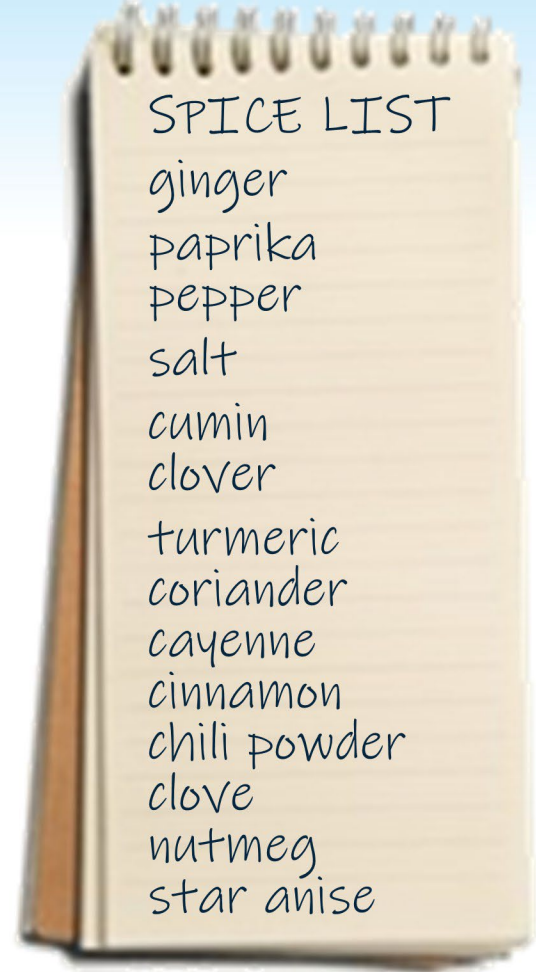 SPICE LIST
ginger
paprika
pepper
salt
cumin
clover
turmeric
coriander
cayenne
cinnamon
chili powder
clove
nutmeg
star anise